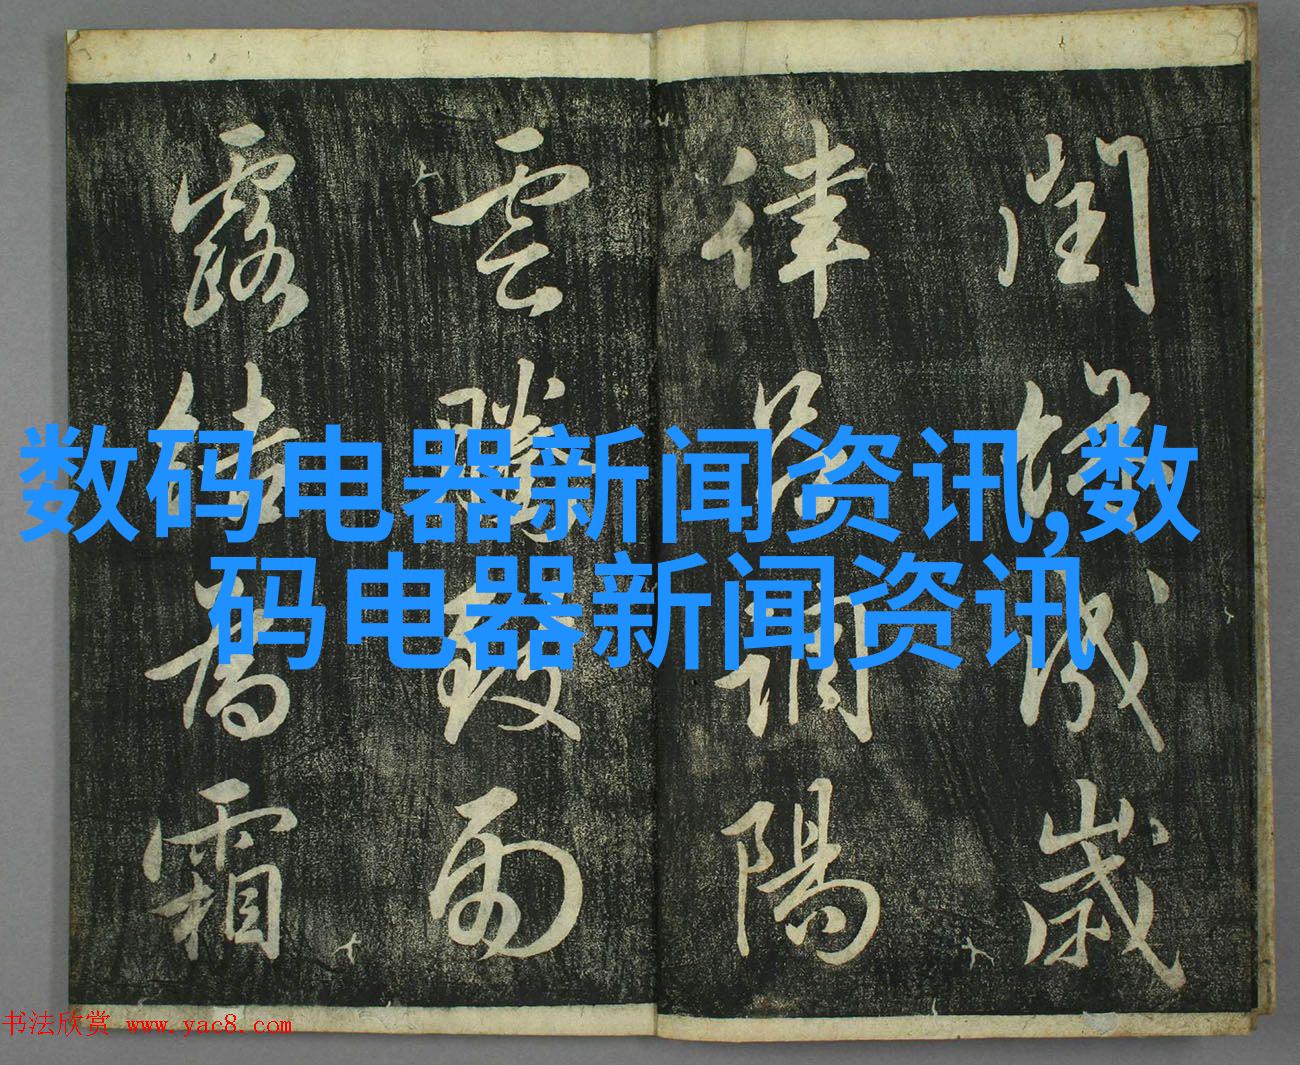 閏餘成歲
律呂調陽
雲騰致雨
露結為霜
数码电器新闻资讯,数
码电器新闻资讯
书法欣赏 www.yac8.com